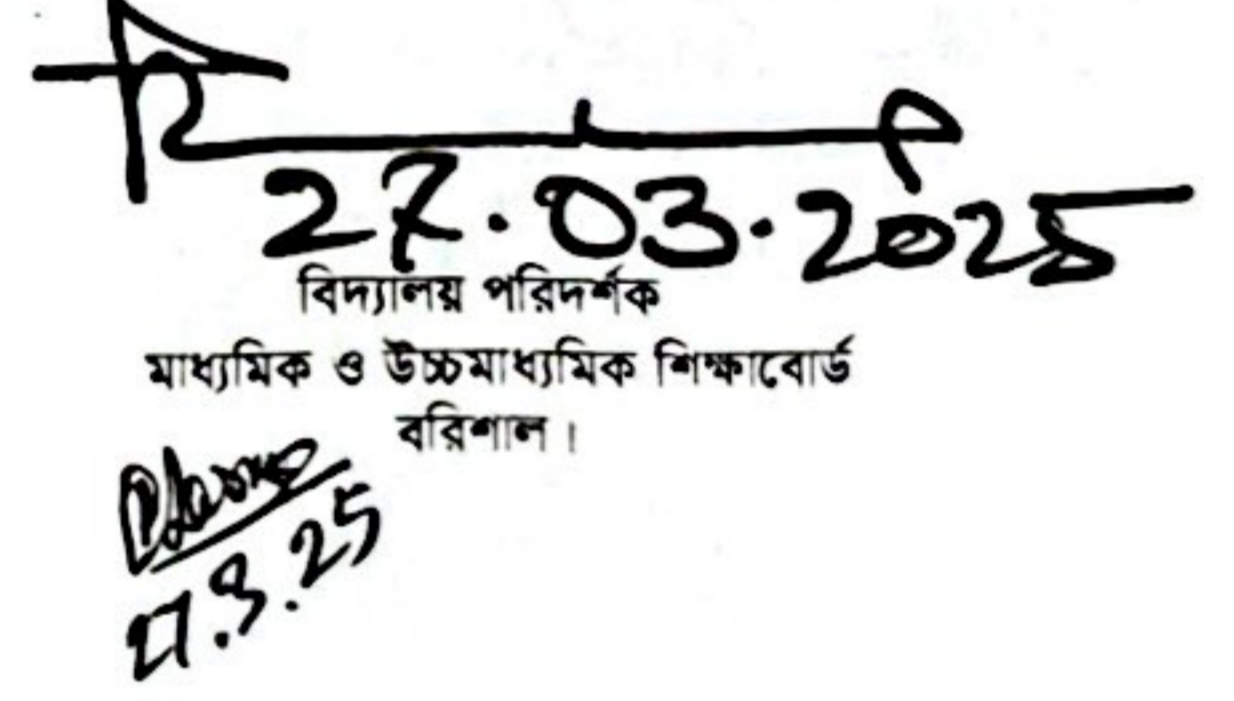 27.03.2025
বিদ্যালয় পরিদর্শক
মাধ্যমিক ও উচ্চমাধ্যমিক শিক্ষাবোর্ড
বরিশাল।
27.3.25